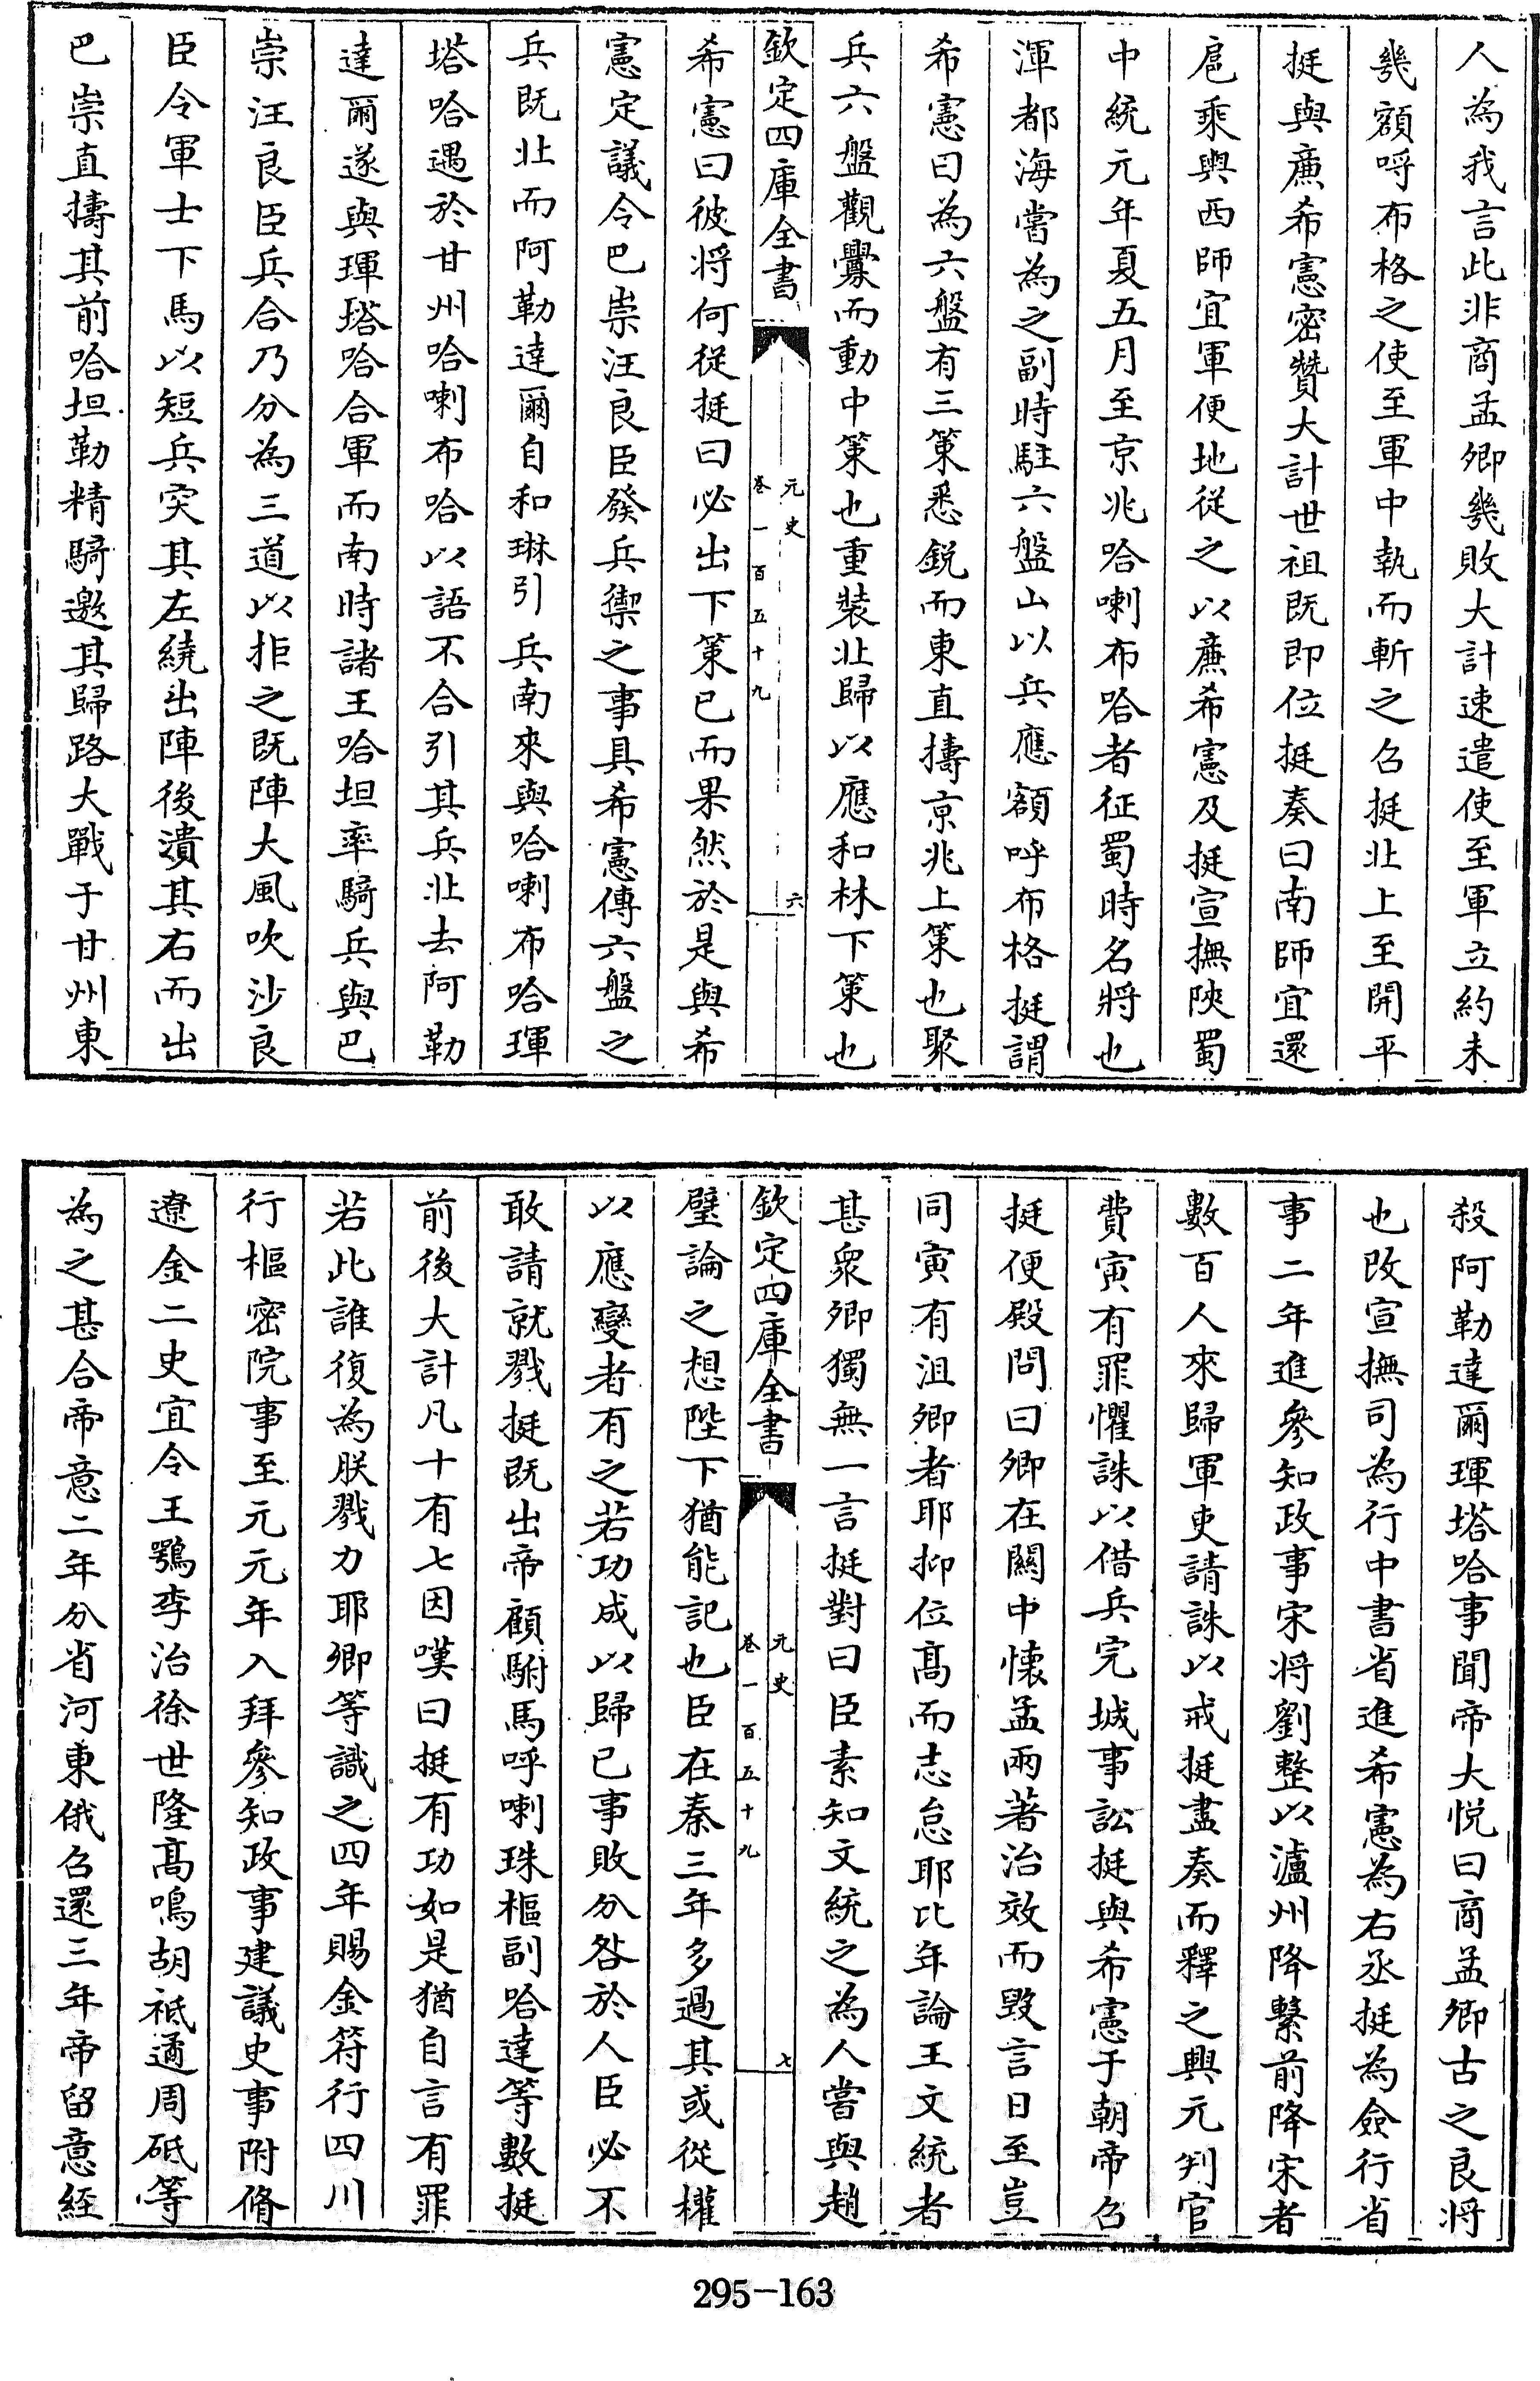 人為我言此非商孟卿幾敗大計速遣使至軍立約未
幾額呼布格之使至軍中執而斬之召挺北上至開平
挺與廉希憲密贊大計世祖既即位挺奏曰南師宜還
扈乘輿西師宜軍便地從之以廉希憲及挺宣撫陜蜀
中統元年夏五月至京兆哈喇布哈者征蜀時名將也
渾都海嘗為之副時駐六盤山以兵應額呼布格挺謂
希憲曰為六盤有三策悉銳而東直擣京兆上策也聚
兵六盤觀釁而動中策也重裝北歸以應和林下策也
欽定四庫全書
元史
卷一百五十九
六
希憲曰彼將何從挺曰必出下策已而果然於是與希
憲定議令巴崇汪良臣發兵禦之事具希憲傳六盤之
兵既北而阿勒達爾自和琳引兵南來與哈喇布哈琿
塔哈遇於甘州哈喇布哈以語不合引其兵北去阿勒
達爾遂與琿塔哈合軍而南時諸王哈坦率騎兵與巴
崇汪良臣兵合乃分為三道以拒之既陣大風吹沙良
臣令軍士下馬以短兵突其左繞出陣後潰其右而出
巴崇直擣其前哈坦勒精騎邀其歸路大戰于甘州東
殺阿勒達爾琿塔哈事聞帝大悅曰商孟卿古之良將
也改宣撫司為行中書省進希憲為右丞挺為僉行省
事二年進參知政事宋將劉整以瀘州降繫前降宋者
數百人來歸軍吏請誅以戒挺盡奏而釋之興元判官
費寅有罪懼誅以借兵完城事訟挺與希憲于朝帝召
挺便殿問曰卿在關中懷孟兩著治效而毀言日至豈
同寅有沮卿者耶抑位髙而志怠耶比年論王文統者
甚衆卿獨無一言挺對曰臣素知文統之為人嘗與趙
欽定四庫全書
元史
卷一百五十九
七
璧論之想陛下猶能記也臣在秦三年多過其或從權
以應變者有之若功成以歸已事敗分咎於人臣必不
敢請就戮挺既出帝顧駙馬呼喇珠樞副哈達等數挺
前後大計凡十有七因嘆曰挺有功如是猶自言有罪
若此誰復為朕戮力耶卿等識之四年賜金符行四川
行樞密院事至元元年入拜參知政事建議史事附脩
遼金二史宜令王鶚李治徐世隆髙鳴胡祗遹周砥等
為之甚合帝意二年分省河東俄召還三年帝留意經
295-163